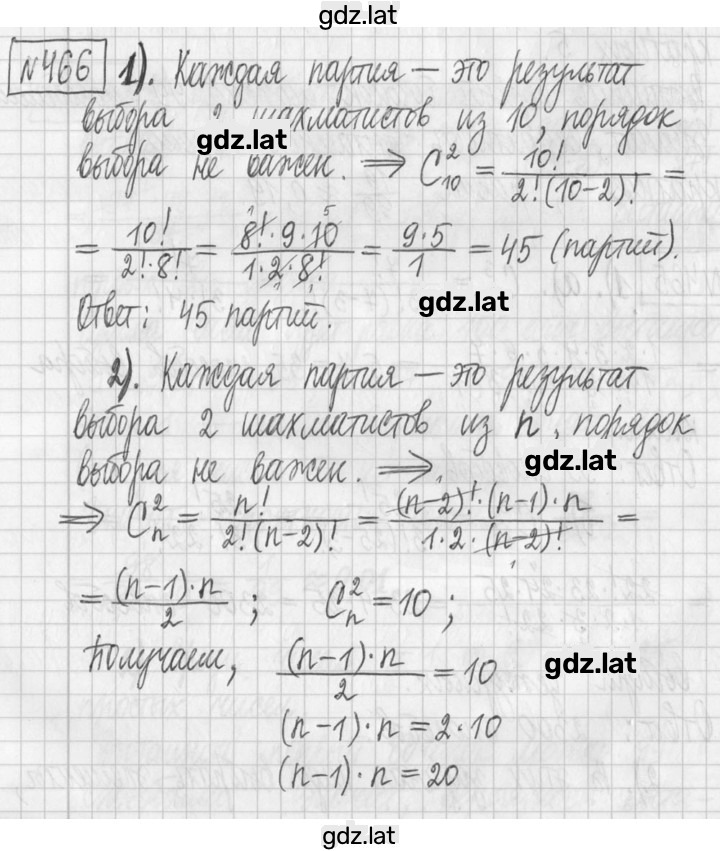 gdz.lat
№466 1). Каждая партия — это результат
выбора 2 шахматистов из 10, порядок
gdz.lat
выбора не важен. ⇒ C₁₀² = 10!/(2!(10-2)!) =
= 10!/(2!·8!) = (8!·9·10)/(1·2·8!) = (9·5)/1 = 45 (партий).
gdz.lat
Ответ: 45 партий.
2). Каждая партия — это результат
выбора 2 шахматистов из n, порядок
gdz.lat
выбора не важен. ⇒
⇒ Cₙ² = n!/(2!(n-2)!) = ((n-2)!·(n-1)·n)/(1·2·(n-2)!) =
= ((n-1)·n)/2 ; Cₙ² = 10 ;
Получаем, ((n-1)·n)/2 = 10
gdz.lat
(n-1)·n = 2·10
(n-1)·n = 20
gdz.lat